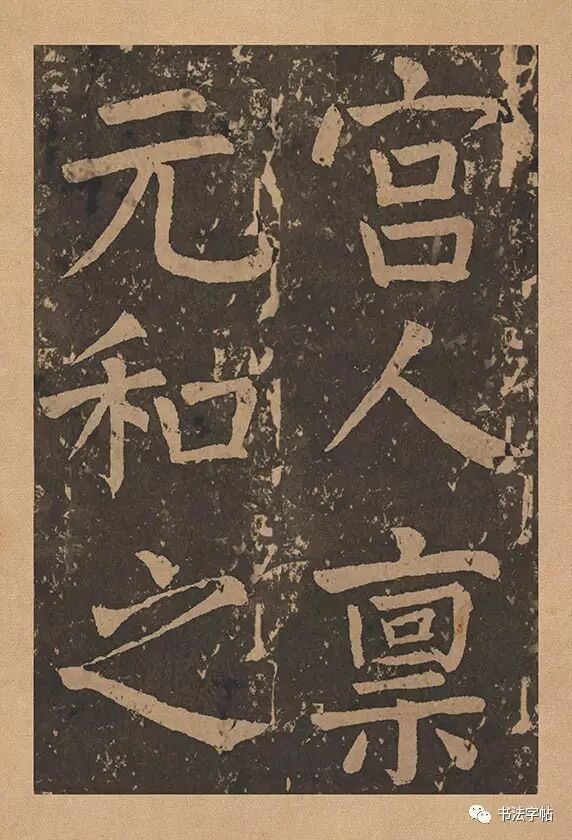 宫人禀
元和之
书法字帖